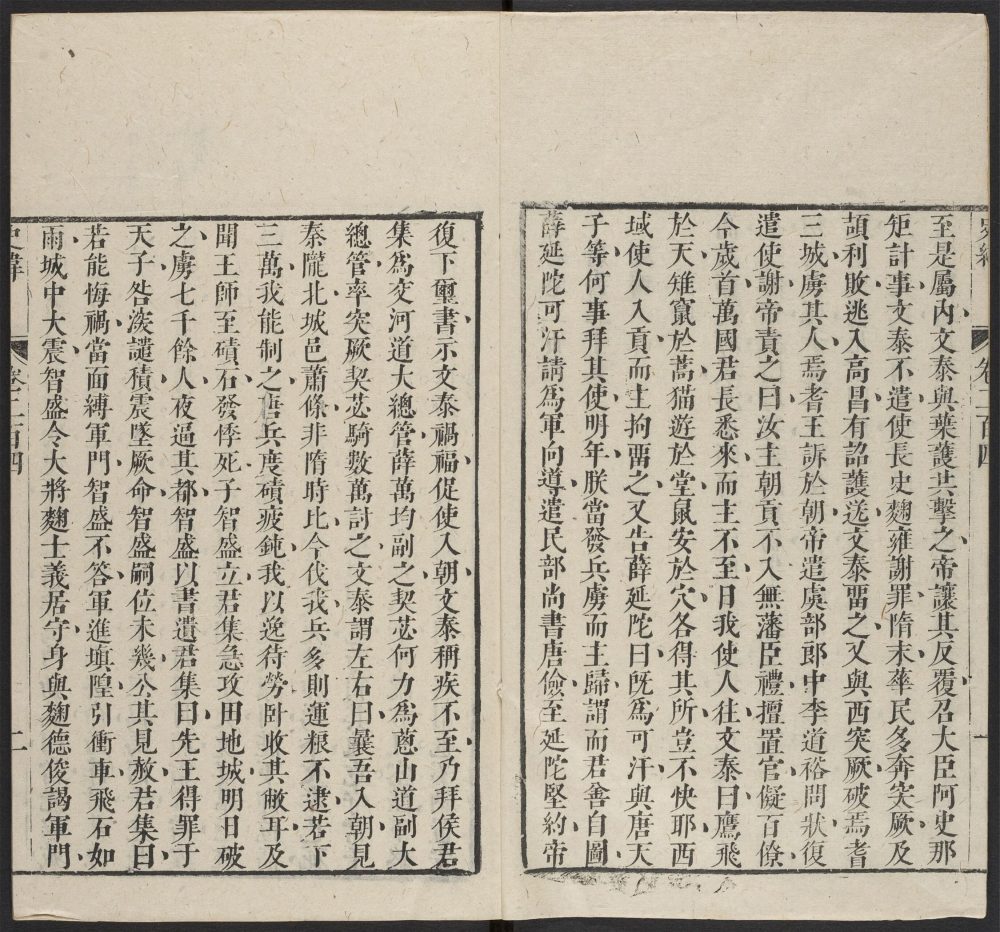 至是屬内文泰與葉護共擊之帝讓其反覆召大臣阿史那
矩計事文泰不遣使長史麴雍謝罪隋末華民多奔突厥及
頡利敗逃入高昌有詔護送文泰畱之又與西突厥破焉耆
三城虜其人焉耆王訴於朝帝遣虞部郎中李道裕問狀復
遣使謝帝責之曰汝主朝貢不入無藩臣禮擅置官儗百僚
今歲首萬國君長悉來而主不至日我使人往文泰曰鷹飛
於天雉竄於蒿猫遊於堂鼠安於穴各得其所豈不快耶西
域使人入貢而主拘畱之又告薛延陀曰既爲可汗與唐天
子等何事拜其使明年朕當發兵虜而主歸謂而君善自圖
薛延陀可汗請爲軍向導遣民部尚書唐儉至延陀堅約帝
卷一百四
一
復下璽書示文泰禍福促使入朝文泰稱疾不至乃拜侯君
集爲交河道大總管薛萬均副之契苾何力爲蔥山道副大
總管率突厥契苾騎數萬討之文泰謂左右曰曩吾入朝見
秦隴北城邑蕭條非隋時比今伐我兵多則運粮不逮若下
三萬我能制之唐兵度磧疲鈍我以逸待勞卧收其敝耳及
聞王師至磧石發悸死子智盛立君集急攻田地城明日破
之虜七千餘人夜逼其都智盛以書遺君集曰先王得罪于
天子咎深譴積震墜厥命智盛嗣位未幾公其見赦君集曰
若能悔禍當面縛軍門智盛不答軍進塡隍引衝車飛石如
雨城中大震智盛令大將麴士義居守身與麴德俊謁軍門
史緯
卷二百四
二